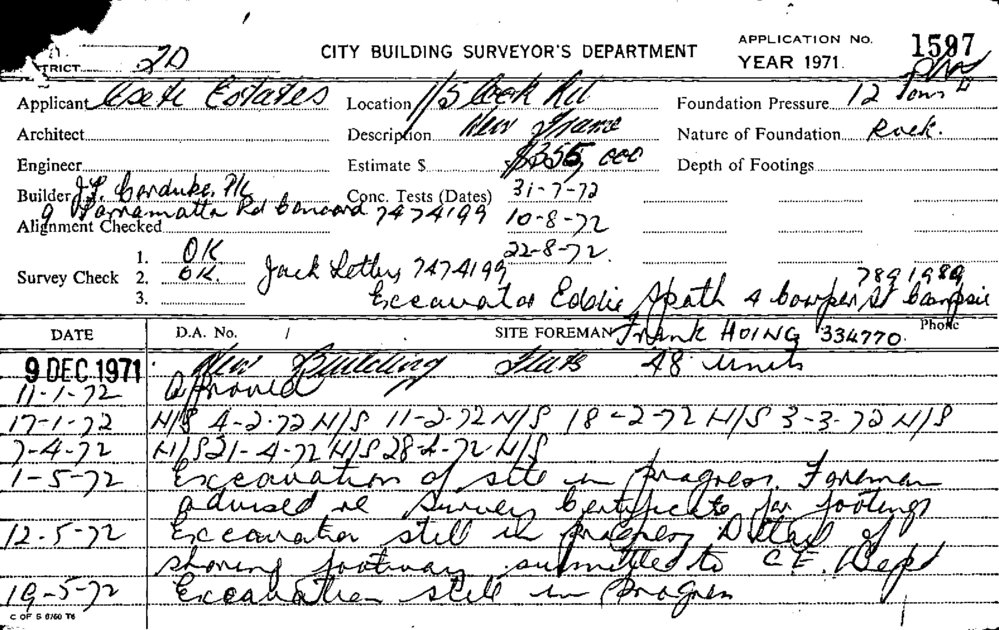 TRICT 2D CITY BUILDING SURVEYOR'S DEPARTMENT APPLICATION NO. 1597
YEAR 1971.
Applicant Estates Location 115 Cook Rd Foundation Pressure 12 Tons
Architect Description New Frame Nature of Foundation Rock.
Engineer Estimate $ $355,000 Depth of Footings
Builder J.L. Conc. Tests (Dates) 31-7-72
9 Parramatta Rd Concord 7474199 10-8-72
Alignment Checked
22-8-72.
1. OK
Survey Check 2. OK. Jack 7474199 7891980
3. Excavator Eddie Spath 4 Cowper St Campsie
DATE D.A. No. / SITE FOREMAN Frank HOING 334770. Phone
9 DEC 1971 New Building Flats 48 units
11-1-72 Approved
17-1-72 N/S 4-2-72 N/S 11-2-72 N/S 18-2-72 N/S 3-3-72 N/S
7-4-72 N/S 21-4-72 N/S 28-4-72 N/S
1-5-72 Excavation of site in progress. Foreman
advised re Survey Certificate for footings
12-5-72 Excavation still in progress Detail of
shoring footway submitted to C.E. Dept
19-5-72 Excavation still in Progress
C OF S 6/60 T6